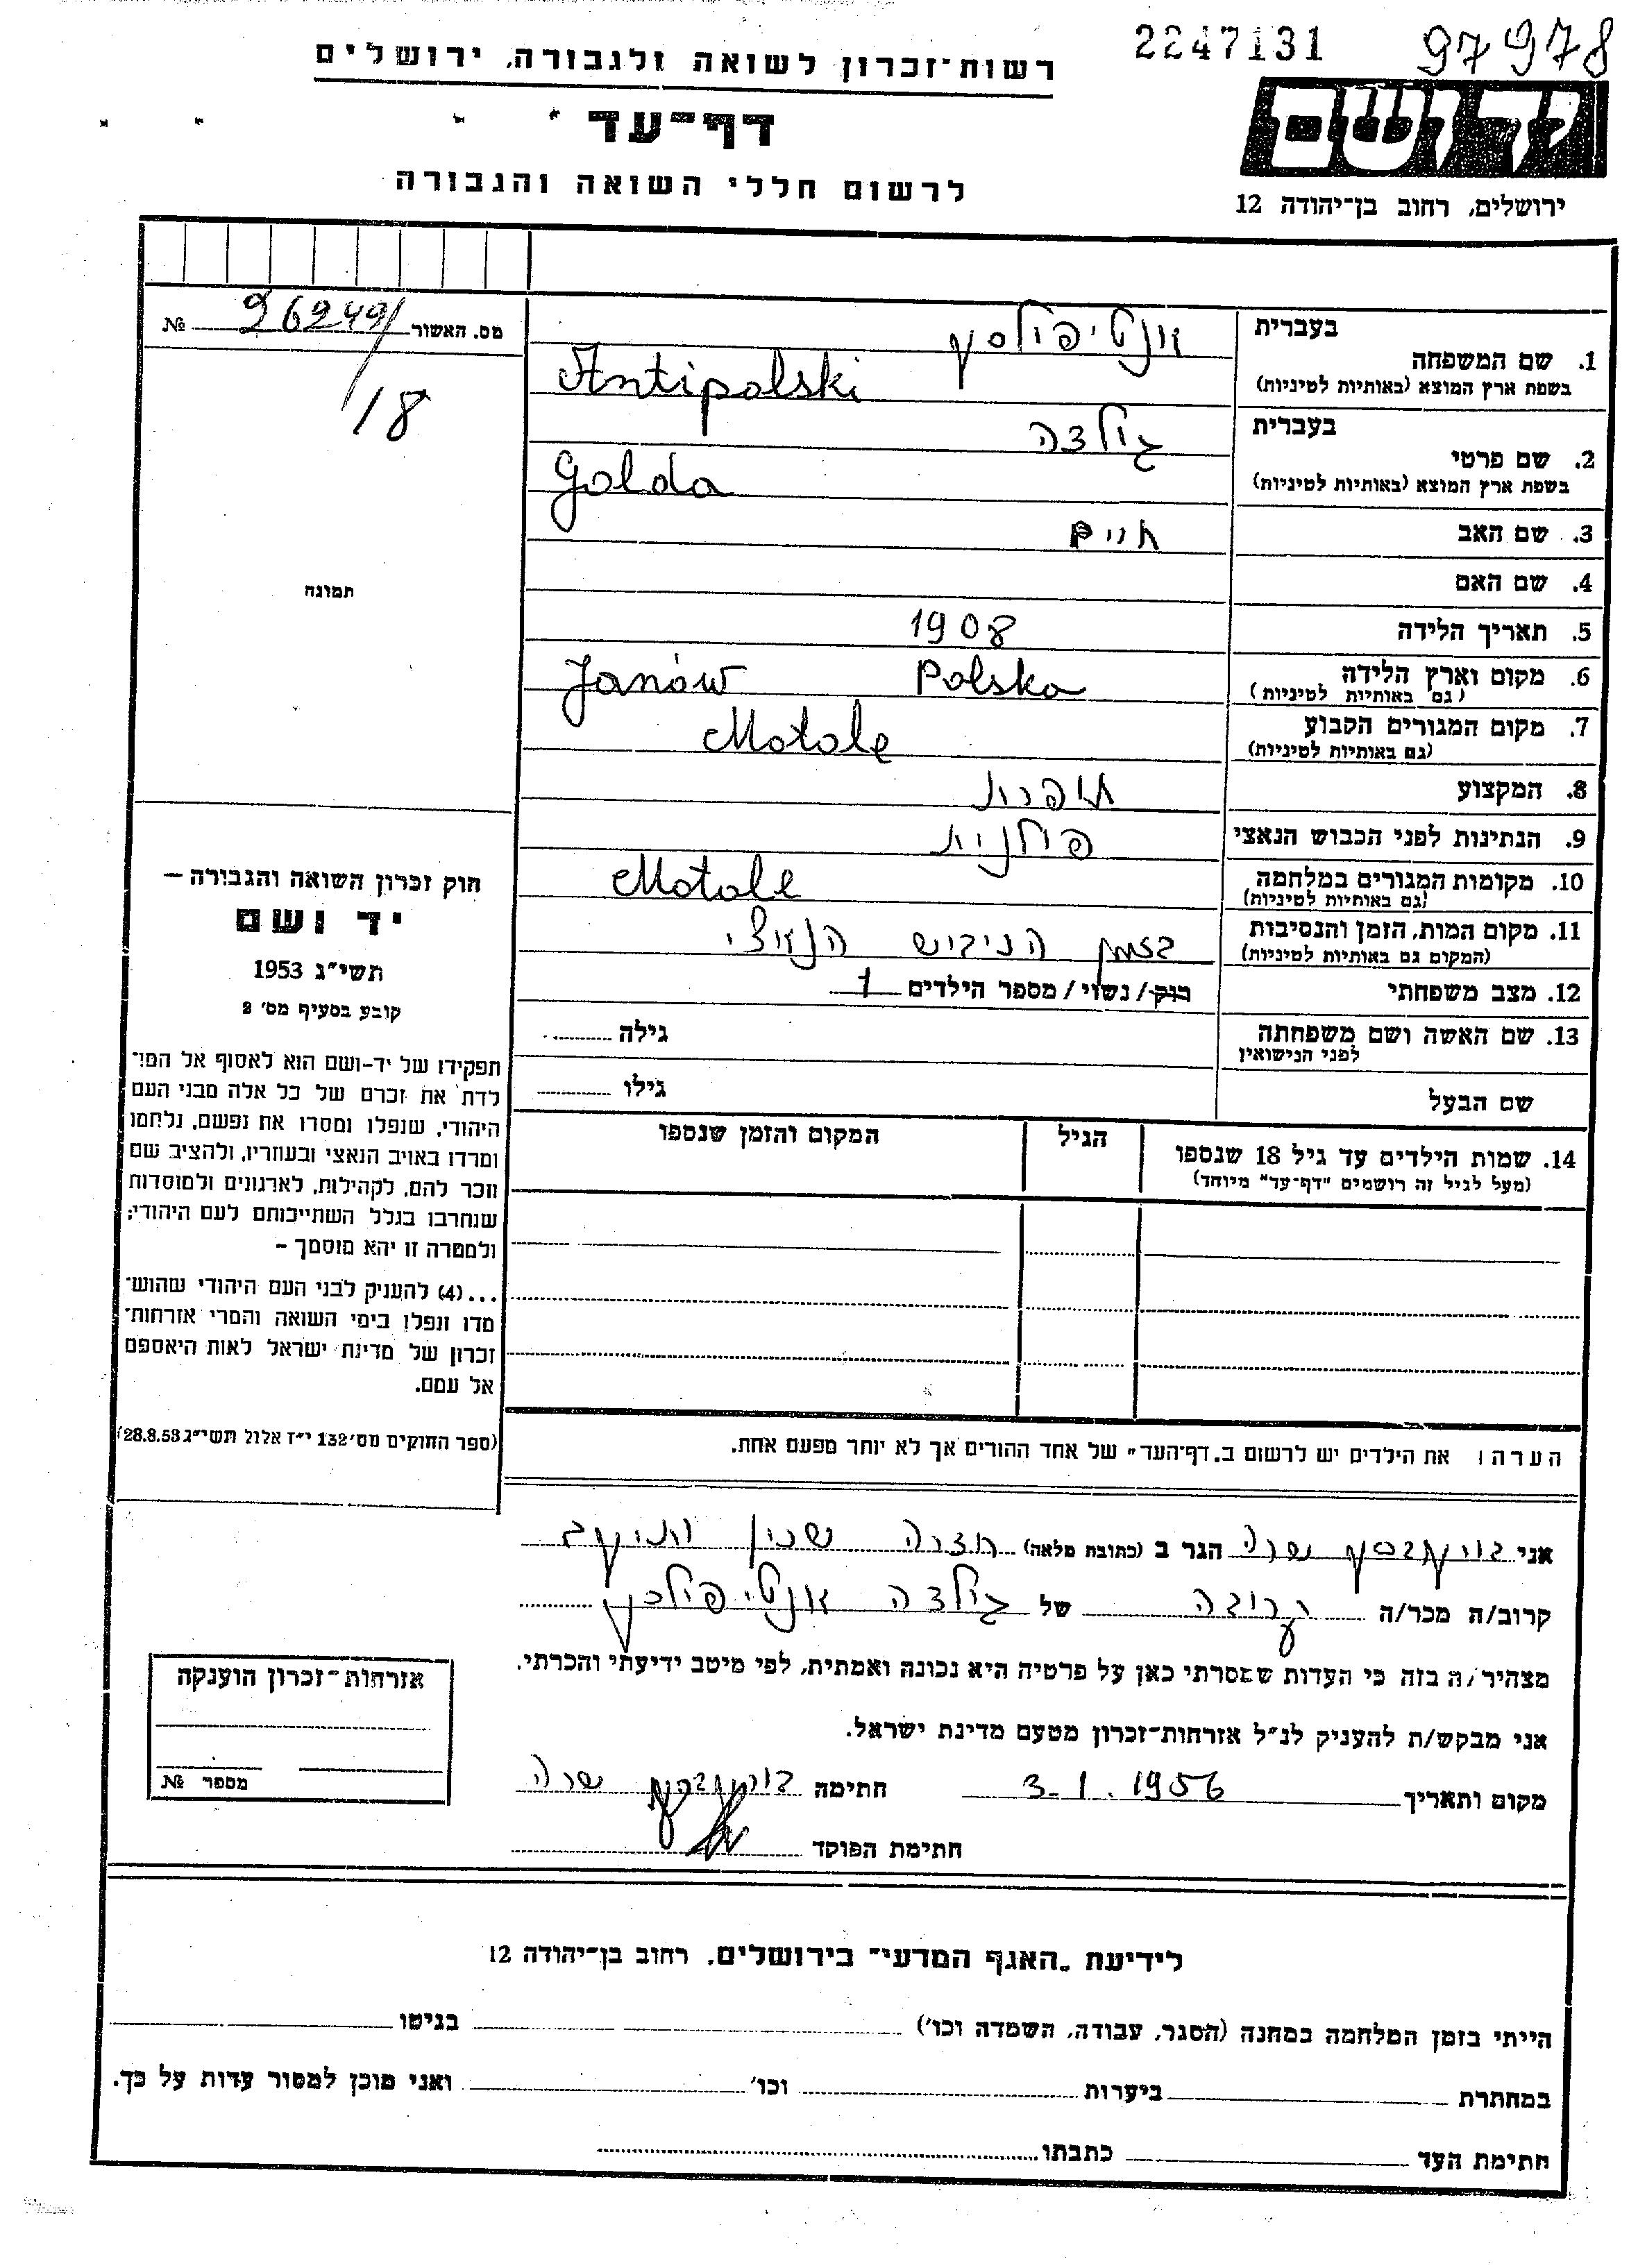 2247131 97978
רשות־זכרון לשואה ולגבורה, ירושלים
דף־עד
לרשום חללי השואה והגבורה
יד ושם
ירושלים, רחוב בן־יהודה 12
מס. האשור 26249/18 №
תמונה
1. שם המשפחה
בעברית אנטיפולסקי
בשפת ארץ המוצא (באותיות לטיניות) Antipolski
2. שם פרטי
בעברית גולדה
בשפת ארץ המוצא (באותיות לטיניות) Golda
3. שם האב חיים
4. שם האם
5. תאריך הלידה 1908
6. מקום וארץ הלידה Janów Polska
(גם באותיות לטיניות)
7. מקום המגורים הקבוע Motole
(גם באותיות לטיניות)
8. המקצוע תופרת
9. הנתינות לפני הכבוש הנאצי פולנית
10. מקומות המגורים במלחמה Motole
(גם באותיות לטיניות)
11. מקום המות, הזמן והנסיבות בזמן הכיבוש הנאצי
(המקום גם באותיות לטיניות)
12. מצב משפחתי רוק/נשוי/מספר הילדים 1
13. שם האשה ושם משפחתה גילה
לפני הנישואין
שם הבעל גילו
14. שמות הילדים עד גיל 18 שנספו הגיל המקום והזמן שנספו
(מעל לגיל זה רושמים "דף־עד" מיוחד)
חוק זכרון השואה והגבורה —
יד ושם
תשי״ג 1953
קובע בסעיף מס׳ 2
תפקידו של יד־ושם הוא לאסוף אל המו־
לדת את זכרם של כל אלה מבני העם
היהודי, שנפלו ומסרו את נפשם, נלחמו
ומרדו באויב הנאצי ובעוזריו, ולהציב שם
וזכר להם, לקהילות, לארגונים ולמוסדות
שנחרבו בגלל השתייכותם לעם היהודי;
ולמטרה זו יהא מוסמך —
...(4) להעניק לבני העם היהודי שהוש־
מדו ונפלו בימי השואה והמרי אזרחות־
זכרון של מדינת ישראל לאות היאספם
אל עמם.
(ספר החוקים מס׳ 132 י״ז אלול תשי״ג 28.8.53)
הערה: את הילדים יש לרשום ב„דף־העד" של אחד ההורים אך לא יותר מפעם אחת.
אני שרה הגר ב (כתובת מלאה) חדרה שכון
קרוב/ה מכר/ה קרובה של גולדה אנטיפולסקי
מצהיר/ה בזה כי העדות שמסרתי כאן על פרטיה היא נכונה ואמתית, לפי מיטב ידיעתי והכרתי.
אני מבקש/ת להעניק לנ״ל אזרחות־זכרון מטעם מדינת ישראל.
מקום ותאריך 3.1.1956 חתימה שרה
חתימת הפוקד
אזרחות־זכרון הוענקה
מספר №
לידיעת „האגף המדעי" בירושלים, רחוב בן־יהודה 12
הייתי בזמן המלחמה במחנה (הסגר, עבודה, השמדה וכו׳) בגיטו
במחתרת ביערות וכו׳ ואני מוכן למסור עדות על כך.
חתימת העד כתבתו